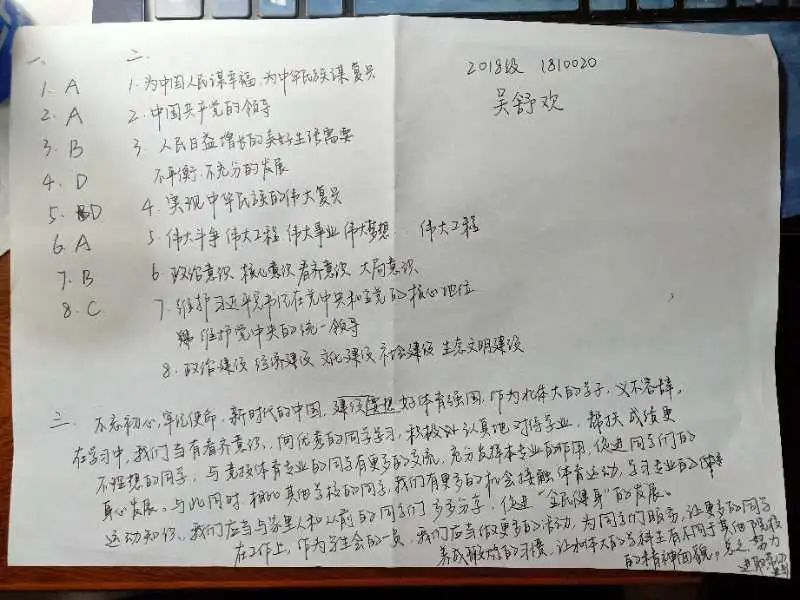 2018级 1810020
吴舒欢
一、
1. A
2. A
3. B
4. D
5. D
6. A
7. B
8. C
二、
1. 为中国人民谋幸福,为中华民族谋复兴
2. 中国共产党的领导
3. 人民日益增长的美好生活需要
不平衡.不充分的发展
4. 实现中华民族的伟大复兴
5. 伟大斗争 伟大工程 伟大事业 伟大梦想 伟大工程
6. 政治意识 核心意识 看齐意识 大局意识
7. 维护习近平总书记在党中央和全党的核心地位
维护党中央的统一领导
8. 政治建设 经济建设 文化建设 社会建设 生态文明建设
三、不忘初心,牢记使命,新时代的中国,建设 好体育强国,作为北体大的学子,义不容辞。
在学习中,我们当有看齐意识,向优秀的同学学习,积极 认真地对待学业,帮扶成绩更
不理想的同学,与竞技体育专业的同学有更多的交流,充分发挥本专业的作用,促进同学们的
身心发展。与此同时,相比其他学校的同学,我们有更多的机会接触体育运动,学习专业的体育
运动知识,我们应当与家里人和以前的同学们多多分享,促进“全民健身”的发展。
在工作上,作为学生会的一员,我们应当做更多的活动,为同学们服务,让更多的同学
养成锻炼的习惯,让北体大的学科生有不同于其他院校
的精神面貌。总之,努力
进取